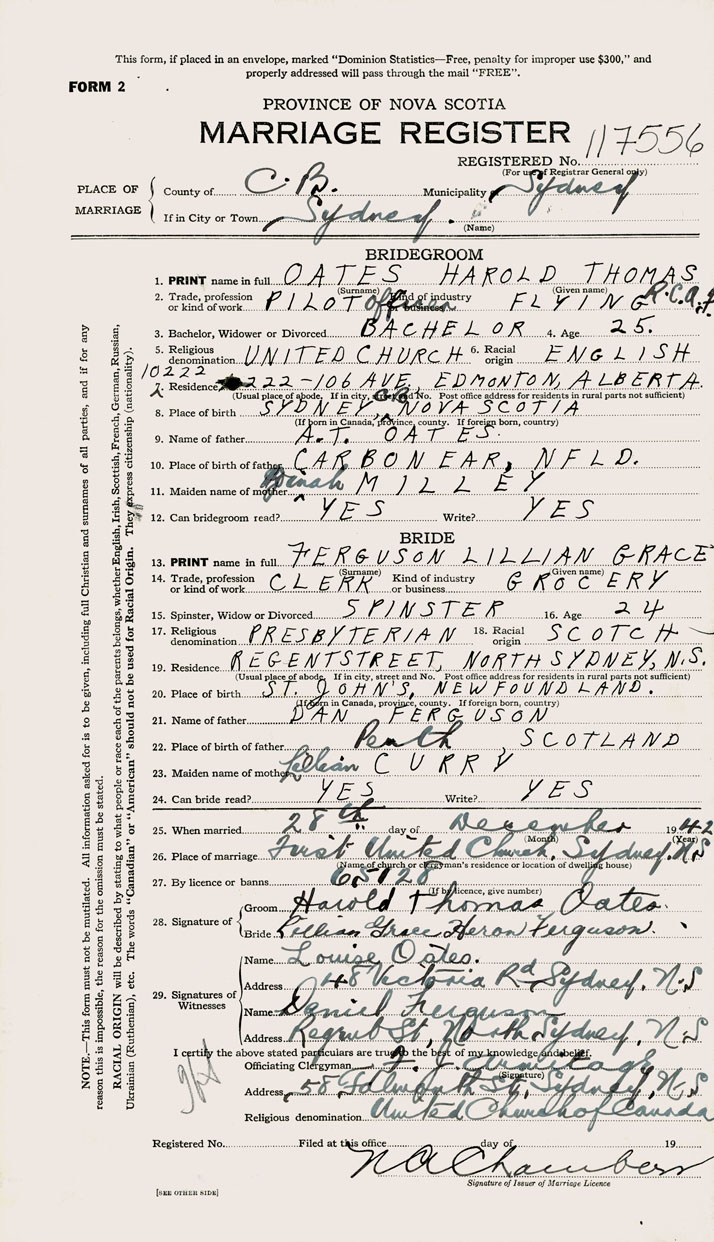 This form, if placed in an envelope, marked "Dominion Statistics—Free, penalty for improper use $300," and
properly addressed will pass through the mail "FREE".
FORM 2
PROVINCE OF NOVA SCOTIA
MARRIAGE REGISTER
REGISTERED No. 117556
(For use of Registrar General only)
PLACE OF MARRIAGE
County of C.B. Municipality Sydney
If in City or Town Sydney.
(Name)
BRIDEGROOM
1. PRINT name in full OATES HAROLD THOMAS
(Surname) (Given name)
2. Trade, profession or kind of work PILOT Officer Kind of industry or business FLYING R.C.A.F.
3. Bachelor, Widower or Divorced BACHELOR 4. Age 25.
5. Religious denomination UNITED CHURCH 6. Racial origin ENGLISH
10222
7. Residence 222-106 AVE, EDMONTON, ALBERTA.
(Usual place of abode. If in city, street and No. Post office address for residents in rural parts not sufficient)
8. Place of birth SYDNEY, CB NOVA SCOTIA
(If born in Canada, province, county. If foreign born, country)
9. Name of father A.T. OATES.
10. Place of birth of father CARBONEAR, NFLD.
11. Maiden name of mother MILLEY
12. Can bridegroom read? YES Write? YES
BRIDE
13. PRINT name in full FERGUSON LILLIAN GRACE
(Surname) (Given name)
14. Trade, profession or kind of work CLERK Kind of industry or business GROCERY
15. Spinster, Widow or Divorced SPINSTER 16. Age 24
17. Religious denomination PRESBYTERIAN 18. Racial origin SCOTCH
19. Residence REGENT STREET, NORTH SYDNEY, N.S.
(Usual place of abode. If in city, street and No. Post office address for residents in rural parts not sufficient)
20. Place of birth ST. JOHN'S, NEWFOUNDLAND.
(If born in Canada, province, county. If foreign born, country)
21. Name of father DAN FERGUSON
22. Place of birth of father Perth, SCOTLAND
23. Maiden name of mother Lillian CURRY
24. Can bride read? YES Write? YES
25. When married 28th day of December 1942
(Month) (Year)
26. Place of marriage First United Church, Sydney, N.S
(Name of church or clergyman's residence or location of dwelling house)
27. By licence or banns 65128
(If by licence, give number)
28. Signature of
Groom Harold Thomas Oates.
Bride Lillian Grace Heron Ferguson.
29. Signatures of Witnesses
Name Louise Oates.
Address 48 Victoria Rd Sydney, N.S
Name Daniel Ferguson
Address Regent St, North Sydney, N.S
I certify the above stated particulars are true to the best of my knowledge and belief.
Officiating Clergyman Armitage
(Signature)
Address 58 Falmouth St, Sydney, N.S
Religious denomination United Church of Canada
Registered No. Filed at this office day of 19
N A Chambers
Signature of Issuer of Marriage Licence
[SEE OTHER SIDE]
NOTE.—This form must not be mutilated. All information asked for is to be given, including full Christian and surnames of all parties, and if for any
reason this is impossible, the reason for the omission must be stated.
RACIAL ORIGIN will be described by stating to what people or race each of the parents belongs, whether English, Irish, Scottish, French, German, Russian,
Ukrainian (Ruthenian), etc. The words "Canadian" or "American" should not be used for Racial Origin. They express citizenship (nationality).